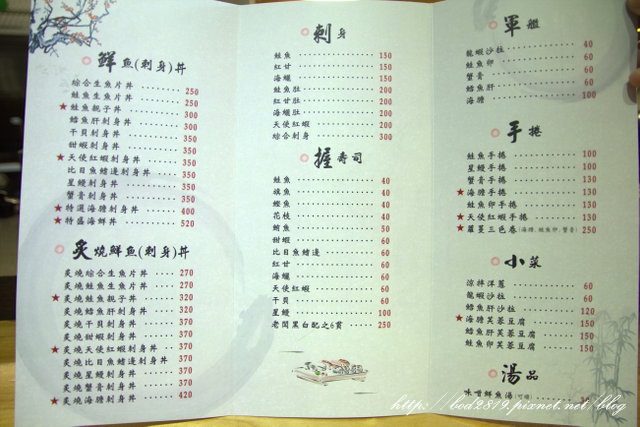 鮮魚(刺身)丼
綜合生魚片丼 ········ 250
鮭魚生魚片丼 ········ 250
★鮭魚親子丼 ········ 300
鱈魚肝刺身丼 ········ 300
干貝刺身丼 ········ 350
甜蝦刺身丼 ········ 350
★天使紅蝦刺身丼 ········ 350
比目魚鰭邊刺身丼 ········ 350
星鰻刺身丼 ········ 350
蟹膏刺身丼 ········ 350
★特選海膽刺身丼 ········ 400
★特盛海鮮丼 ········ 520
炙燒鮮魚(刺身)丼
炙燒綜合生魚片丼 ······ 270
炙燒鮭魚生魚片丼 ······ 270
★炙燒鮭魚親子丼 ······ 320
炙燒鱈魚肝刺身丼 ······ 320
炙燒干貝刺身丼 ······ 370
炙燒甜蝦刺身丼 ······ 370
★炙燒天使紅蝦刺身丼 ······ 370
炙燒比目魚鰭邊刺身丼 ······ 370
炙燒星鰻刺身丼 ······ 370
炙燒蟹膏刺身丼 ······ 370
★炙燒海膽刺身丼 ······ 420
刺身
鮭魚 ········ 150
紅甘 ········ 150
海鱺 ········ 150
鮭魚肚 ········ 200
紅甘肚 ········ 200
海鱺肚 ········ 200
天使紅蝦 ········ 200
綜合刺身 ········ 300
握壽司
鮭魚 ········ 40
旗魚 ········ 40
鰹魚 ········ 40
花枝 ········ 40
鮪魚 ········ 50
甜蝦 ········ 60
比目魚鰭邊 ········ 60
紅甘 ········ 60
海鱺 ········ 60
天使紅蝦 ········ 60
干貝 ········ 60
星鰻 ········ 100
老闆黑白配之6貫 ····· 250
軍艦
龍蝦沙拉 ········ 40
鮭魚卵 ········ 60
蟹膏 ········ 60
鱈魚肝 ········ 60
海膽 ········ 100
手捲
鮭魚手捲 ········ 100
星鰻手捲 ········ 100
蟹膏手捲 ········ 130
★海膽手捲 ········ 130
鮭魚卵手捲 ········ 130
★天使紅蝦手捲 ········ 130
★蘿蔓三色卷(海膽,鮭魚卵,蟹膏) 250
小菜
涼拌洋蔥 ········ 60
龍蝦沙拉 ········ 60
鱈魚肝 ········ 120
★海膽芙蓉豆腐 ········ 150
鱈魚肝芙蓉豆腐 ········ 150
鮭魚卵芙蓉豆腐 ········ 150
湯品
味噌鮮魚湯(可續)
http://bod2819.pixnet.net/blog